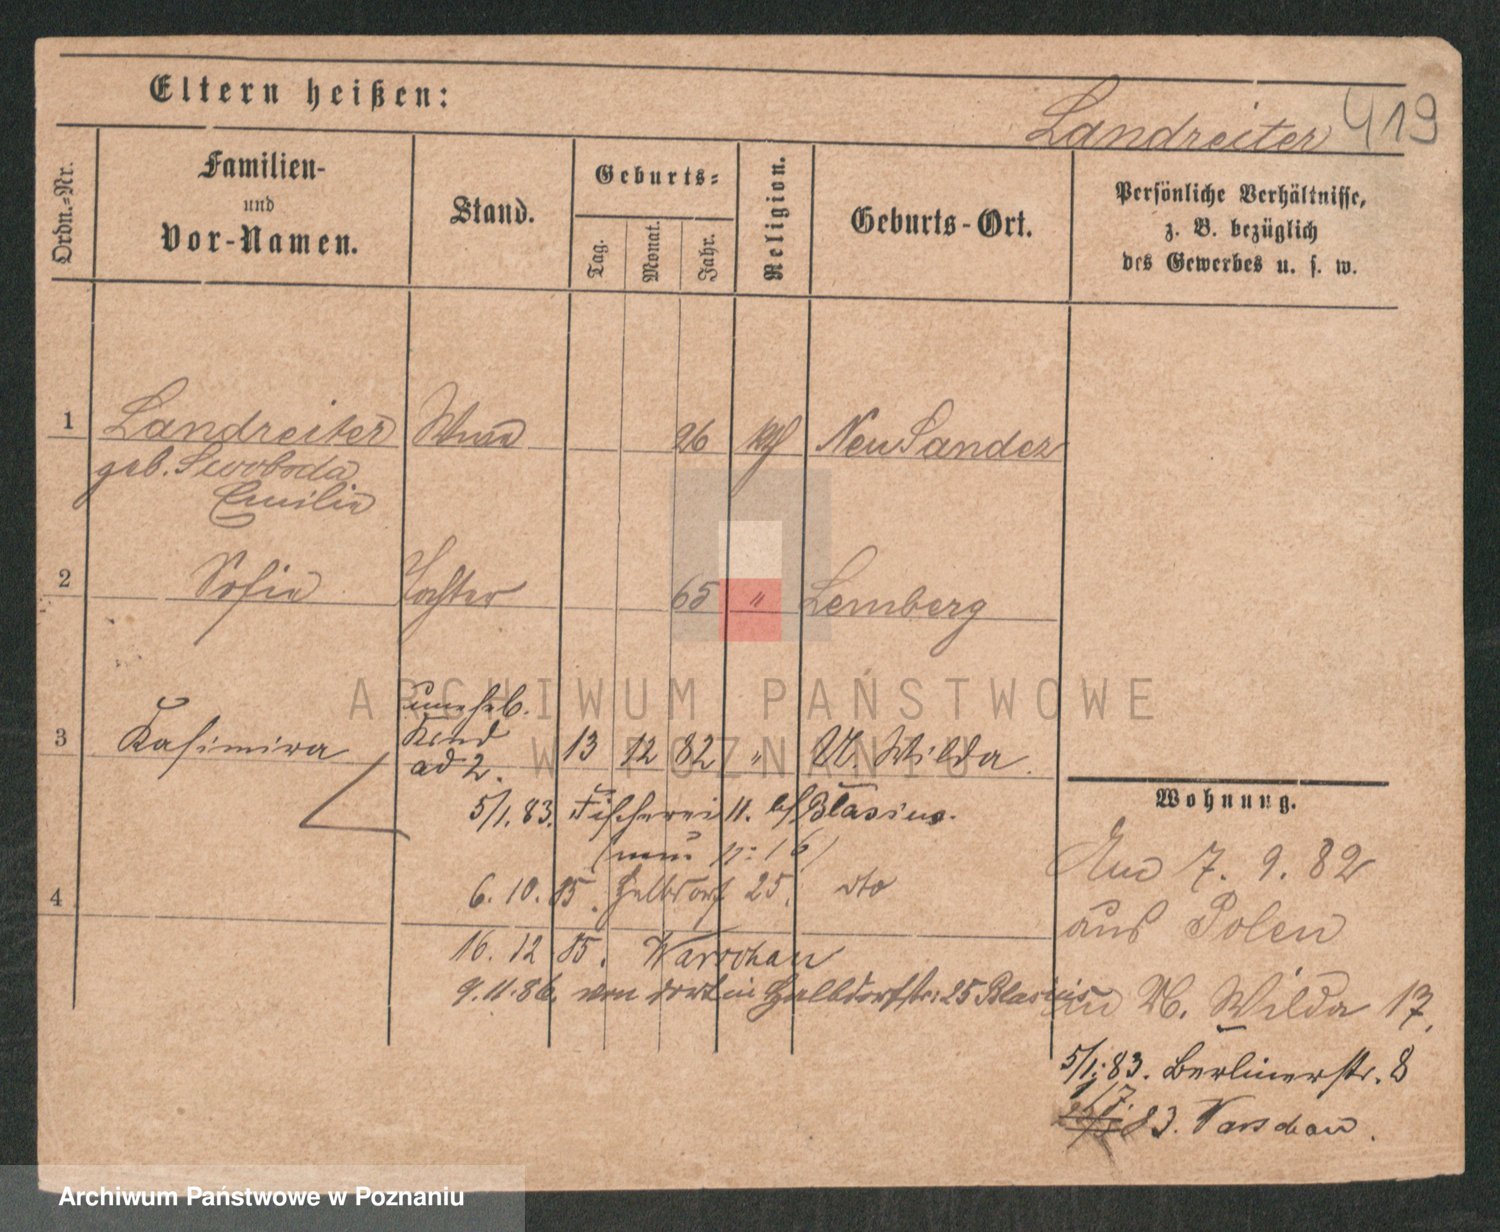 Eltern heißen:
Landreiter 419
Ordn.-Nr.
Familien-
und
Vor-Namen.
Stand.
Geburts-
Tag.
Monat.
Jahr.
Religion.
Geburts-Ort.
Persönliche Verhältnisse,
z. B. bezüglich
des Gewerbes u. s. w.
1 Landreiter 26 kth Neu Sandez
geb. Swoboda
Emilie
2 Sofie Tochter 65 " Lemberg
uneheb.
3 Kasimira Kind 13 12 82 " U. Wilda.
ad 2.
5/1. 83. Fischerei 11. b/Blasius.
6. 10. 85. Halbdorf 25. dto
4
16. 12 85. Warschau
9. 11. 86. von dort in Halbdorfstr: 25 Blasius
Wohnung.
7. 9. 82
aus Polen
in U. Wilda 17.
5/1. 83. Berlinerstr. 8
83. Warschau.
ARCHIWUM PAŃSTWOWE
W POZNANIU
Archiwum Państwowe w Poznaniu